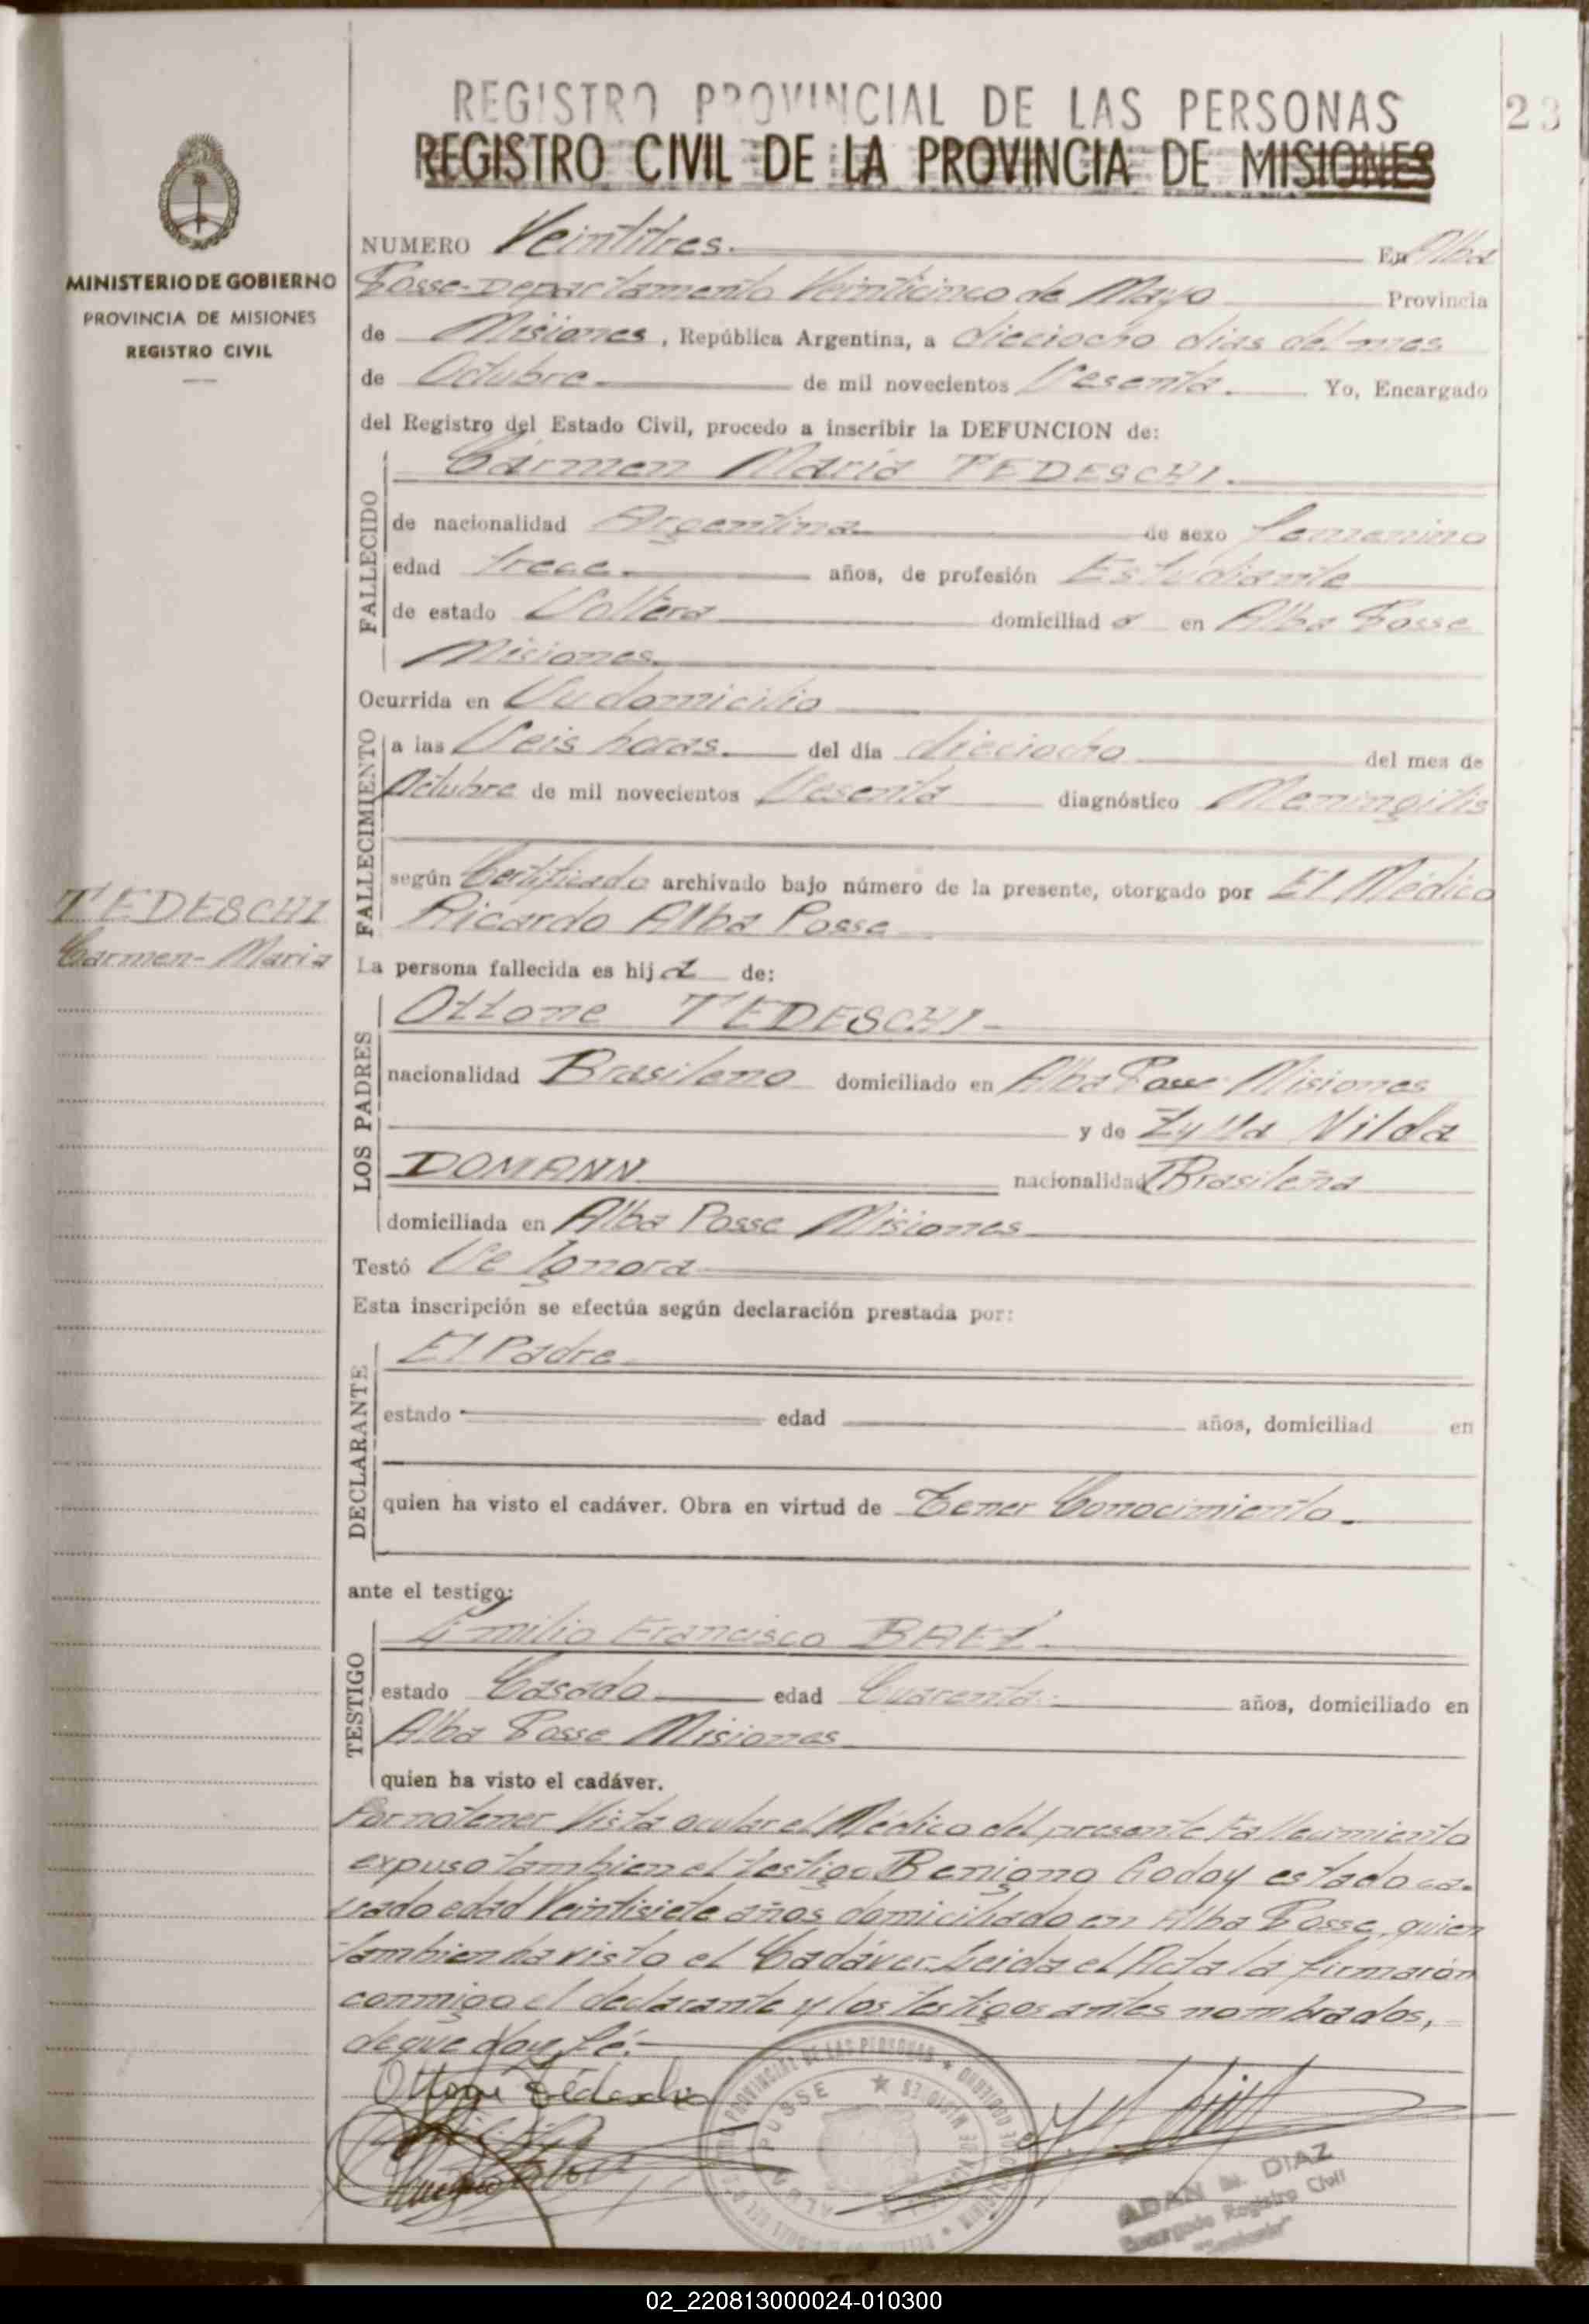 REGISTRO PROVINCIAL DE LAS PERSONAS
23
REGISTRO CIVIL DE LA PROVINCIA DE MISIONES
MINISTERIO DE GOBIERNO
PROVINCIA DE MISIONES
REGISTRO CIVIL
NUMERO Veintitres. En Alba
Posse-Departamento Veinticinco de Mayo Provincia
de Misiones, República Argentina, a dieciocho dias del mes
de Octubre de mil novecientos Sesenta. Yo, Encargado
del Registro del Estado Civil, procedo a inscribir la DEFUNCION de:
FALLECIDO
Carmen Maria TEDESCHI.
de nacionalidad Argentina de sexo femenino
edad trece años, de profesión Estudiante
de estado Soltera domiciliad a en Alba Posse
Misiones
Ocurrida en Su domicilio
FALLECIMIENTO
a las Seis horas. del día dieciocho del mes de
Octubre de mil novecientos Sesenta diagnóstico Meningitis
según Certificado archivado bajo número de la presente, otorgado por El Médico
Ricardo Alba Posse
TEDESCHI
Carmen-Maria
La persona fallecida es hij a de:
LOS PADRES
Ottone TEDESCHI
nacionalidad Brasileno domiciliado en Alba Posse Misiones
y de Zylla Nilda
DOMANN nacionalidad Brasileña
domiciliada en Alba Posse Misiones
Testó Se Ignora
Esta inscripción se efectúa según declaración prestada por:
DECLARANTE
El Padre
estado edad años, domiciliad en
quien ha visto el cadáver. Obra en virtud de Tener Conocimiento.
ante el testigo:
TESTIGO
Emilio Francisco BAEZ
estado Casado edad Cuarenta años, domiciliado en
Alba Posse Misiones
quien ha visto el cadáver.
Por no tener Vista ocular el Médico del presente Fallecimiento
expuso tambien el testigo Benigno Godoy estado ca-
sado edad Veintisiete años domiciliado en Alba Posse, quien
tambien ha visto el Cadáver. Leida el Acta la firmaron
conmigo el declarante y los testigos antes nombrados,
de que doy fé.
Ottone Tedeschi
ALBA POSSE
ADAN M. DIAZ
Encargado Registro Civil
02_220813000024-010300